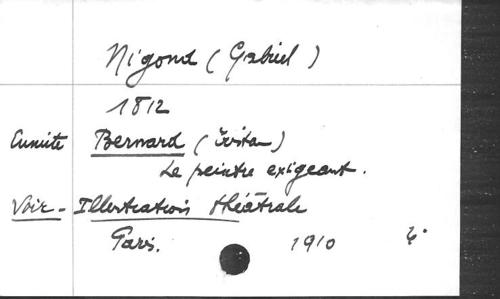 Nigond (Gabriel)
1812
Ensuite Bernard (Tristan)
Le peintre exigeant.
Voir - Illustration théâtrale
Paris. 1910 4°